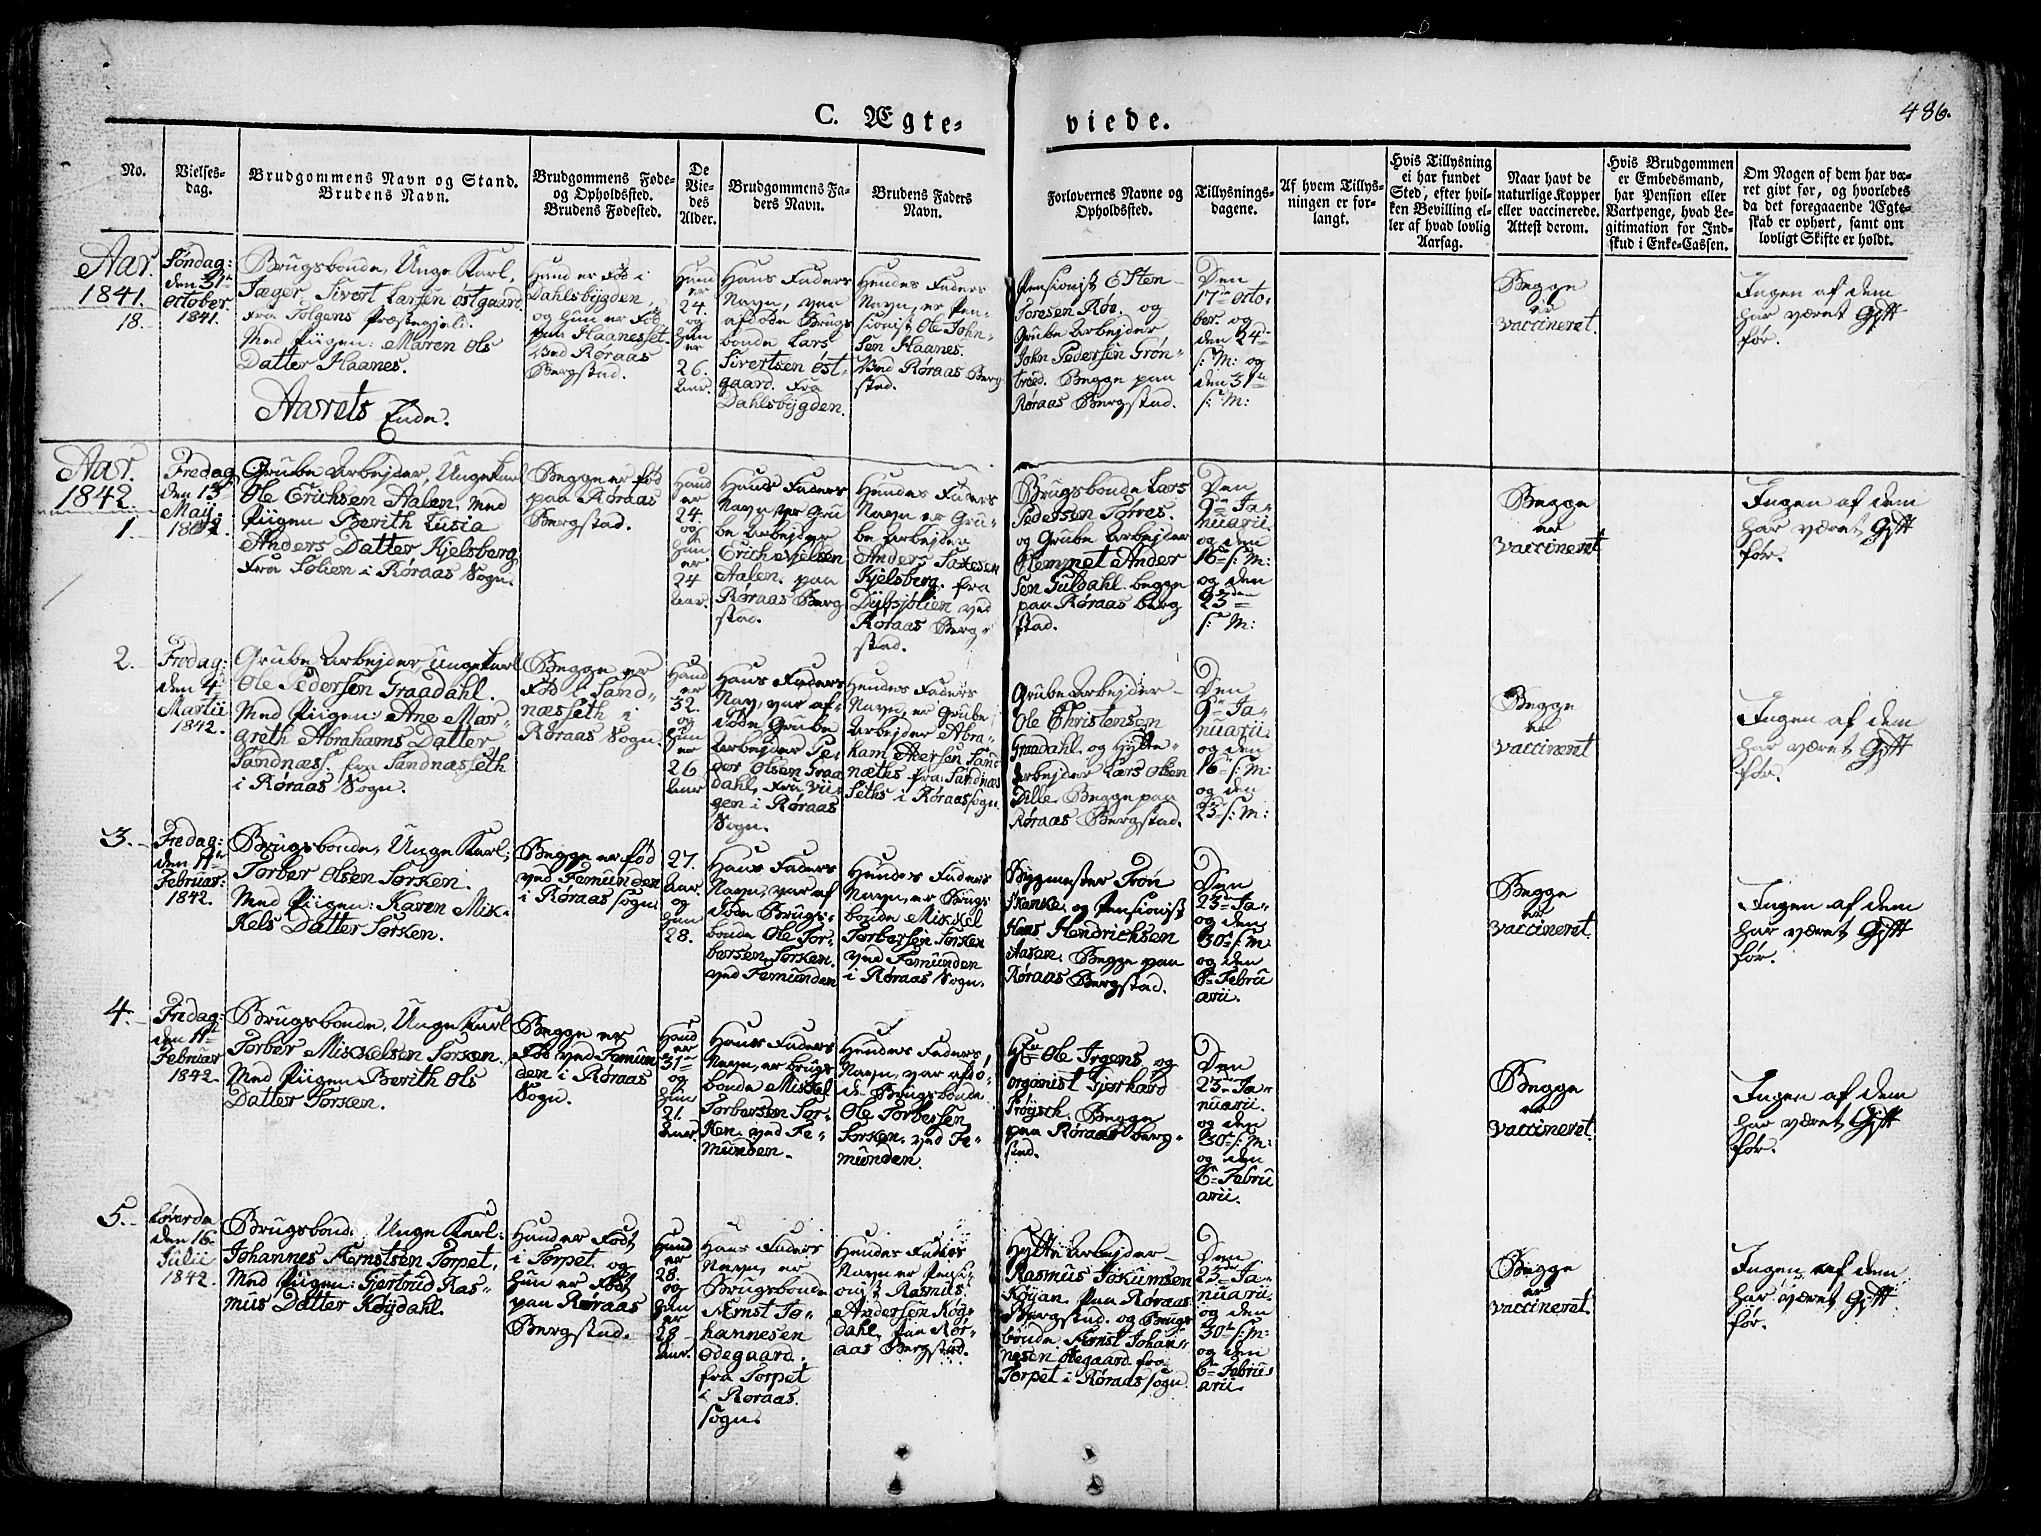 486.
C. Ægte-
viede.
No.
Vielses-
dag.
Brudgommens Navn og Stand.
Brudens Navn.
Brudgommens Føde-
og Opholdssted.
Brudens Fødested.
De
Vie-
des
Alder.
Brudgommens Fa-
ders Navn.
Brudens Faders
Navn.
Forlovernes Navne og
Opholdssted.
Tillysnings-
dagene.
Af hvem Tillys-
ningen er for-
langt.
Hvis Tillysning
ei har fundet
Sted, efter hvil-
ken Bevilling el-
ler af hvad lovlig
Aarsag.
Naar havt de
naturlige Kopper
eller vaccinerede.
Attest derom.
Hvis Brudgommen
er Embedsmand,
har Pension eller
Vartpenge, hvad Le-
gitimation for Ind-
skud i Enke-Cassen.
Om Nogen af dem har væ-
ret givt før, og hvorledes
da det foregaaende Ægte-
skab er ophørt, samt om
lovligt Skifte er holdt.
Aar.
1841.
18.
Søndag:
den 31te
October
1841.
Brugsbonde, Unge Karl,
Jæger, Sivert Larsen Østgaard.
Fra Tolgens Præstegjeld.
Med Piigen: Maren Ols
Datter Haanes.
Aarets Ende.
Hand er Fød i
Dahlsbygden,
og Hun er Fød
paa Haanesset.
Ved Røraas
Bergstad.
Hand
er
24.
og
Hun
er
26.
Aar.
Hans Faders
Navn, var
afdøde Brugs-
bonde Lars
Sivertsen Øst-
gaard. Fra
Dahlsbygden.
Hendes Faders
Navn, er Pen-
sionist Ole John-
sen Haanes.
Ved Røraas Berg-
stad.
Pensionist Esten
Toresen Røe, og
Grube Arbejder
John Pedersen Grøn-
troed. Begge paa
Røraas Bergstad.
Den
17de Octo-
ber. og
den 24de
s: M: og
den 31te
s: M:
Begge
er
vaccineret.
Ingen af dem
har været Gift
før.
Aar.
1842.
1.
Fredag
den 13
Maij:
1842.
Grube Arbejder, Unge Karl
Ole Erichsen Aalen, Med
Piigen Berith Lusia
Anders Datter Kjelsberg
Fra Sølien i Røraas Sogn.
Begge er fød
paa Røraas
Bergstad.
Hand
er
24.
og
Hun
er
24
Aar.
Hans Faders
Navn, er Gru
be Arbejder
Erich Nielsen
Aalen. paa
Røraas Berg
stad.
Hendes Faders
Navn er Gru-
be Arbejder
Anders Saxesen
Kjelsberg. fra
Dybsjølien ved
Røraas Berg-
stad.
Brugsbonde Lars
Pedersen Torres
og Grube Arbejder
Clemmet Ander
sen Guldahl. begge
paa Røraas berg
stad.
Den
9de Ja-
nuarii.
og den
16de s: M:
og den
23de
s: M:
Begge
er
vaccineret
Ingen af dem
har været Gift
før.
2.
Fredag:
den 4de
Martii
1842.
Grube Arbejder, Unge Karl
Ole Pedersen Graadahl.
Med Piigen: Ane Mar-
greth Abrahams Datter
Sandnæss. fra Sandnæsseth
i Røraas Sogn.
Begge er
Fød i Sand-
næsseth i
Røraas Sogn.
Hand
er
32.
og
Hun
er
26
Aar
Hans Faders
Nav, var af-
døde Grube
Arbejder Pe-
der Olsen Graa
dahl, fra Vii
gen i Røraas
Sogn.
Hendes Faders
Navn, er Grube
Arbejder Abra-
ham Andersen Sand
næths fra Sandnæs
seths i Røraas sogn.
Grube Arbejder
Ole Christensen
Graadahl. og Hytte-
Arbejder Lars Olsen
Dille, Begge paa
Røraas Bergstad.
Den
9de Ja-
nuarii.
og den
16de s: M:
og den
23de s: M:
Begge
er
vaccineret
Ingen af dem
har været Gift
før.
3.
Fredag:
den 11te
Februar:
1842.
Brugsbonde, Unge Karl,
Torber Olsen Sorken.
Med Piigen: Karen Mik-
kels Datter Sorken.
Begge er fød
ved Femunden
i Røraas sogn.
27.
Aar
og
Hun
28.
Hans Faders
Navn, var af
døde Brugs-
bonde Ole Tor-
bersen Sorken.
ved Femunden
Hendes Faders
Navn, er Brugs
bonde Mikkel
Torbersen Sorken
ved Femunden
i Røraas Sogn.
Bygmester Tron
Skanke, og Pensionist
Hans Hendrichsen
Aasen. Begge paa
Røraas Bergstad.
Den
23de Ja-
og den
30te s: M
og den
6te Febru
arii.
Begge
er
vaccineret.
Ingen af dem
har været Gift
før.
4.
Fredag:
den 11te
Februar
1842.
Brugsbonde, Unge Karl
Torber Mikkelsen Sorken.
Med Piigen Berith Ols
Datter Sorken.
Begge er
Fød ved Femun
den i Røraas
Sogn.
Hand
er
31te
og
Hun
21.
Aar.
Hans Faders
Navn, er brugs
bonde Mikkel
Torbersen Sor-
ken, ved Fe-
munden.
Hendes Faders,
Navn, var afdø-
de Brugsbonde
Ole Torbersen
Sorken, ved Fe-
munden.
Hr Ole Irgens, og
Organist Gjerhard
Prøysth. Begge
paa Røraas berg-
stad.
Den
23de Ja-
nuarii.
og den
30te s: M:
og den
6te Febru
arii.
Begge
er
vaccineret.
Ingen af dem
har været Gift
før.
5.
Løverda
den 16
Julii
1842.
Brugsbonde, Unge Karl:
Johannes Ærnstsen Torpet,
Med Piigen: Gjertrud Ras-
mus Datter Køydahl.
Hand er Født
i Torpet. og
Hun er Født
paa Røraas
Bergstad.
Hand
er
28.
og
Hun
er
28
Aar.
Hans Faders
Navn, er
Brugsbonde
Ærnst Jo-
hannesen
Ødegaard.
fra Torpet
i Røraas.
sogn.
Hendes Faders
Navn er Pensi-
onist Rasmus
Andersen Køy-
dahl, paa Rør-
aas Bergstad.
Hytte Arbejder
Rasmus Jokumsen
Køyan. paa Røraas
Bergstad. og Brugs
bonde Ærnst Johan-
nesen Ødegaard fra
Torpet i Røraas sogn.
Den
23de Ja-
nuarii.
og den
30te s: M:
og den
6te Febru
arii.
Begge
er
vaccineret.
Ingen af dem
har været Gift
før.